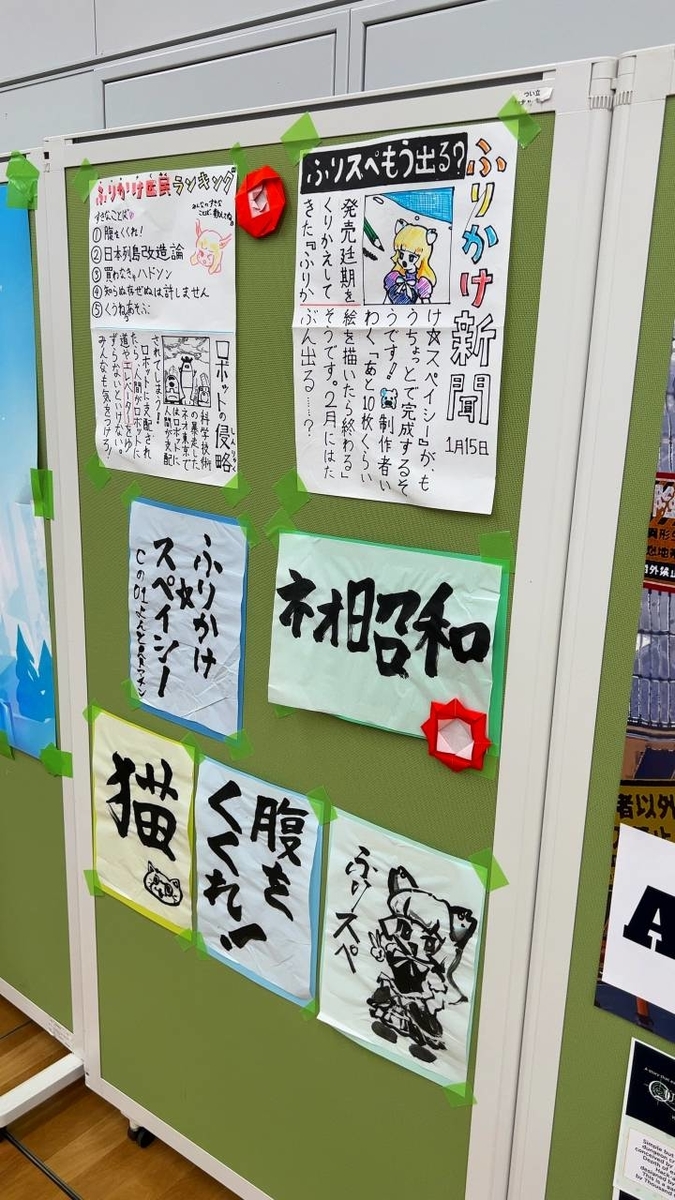 つい立
ふりかけ区民ランキング
すきなことば
みんなのすきな
ことば、教えてね。
①腹をくくれ!
②日本列島改造論
③買わなきゃハドソン
④知らぬなぜぬは許しません
⑤くうねるあそぶ
ロボットの侵略
しんりゃく
科学技術
の暴走した
ネオ東京で
はロボットに
人間が支配
されてしまう!
ロボットに支配され
たら人間がロボットに
道やエレベーターをゆ
ずらないといけない。
みんなも気をつけろ!
ふりかけ新聞
1月15日
ふりスペもう出る?
発売延期を
くりかえして
きた『ふりか
け☆スペイシー』が、も
うちょっとで完成するそ
うです!!制作者い
わく「あと10枚くらい
絵を描いたら終わる」
そうです。2月にはた
ぶん出る……?
ふりかけ
☆
スペイシー
ネオ昭和
猫
腹を
くくれ!!
ふりスペ
者以外
A
Simple but
dungeon cr
conceived by
Death of